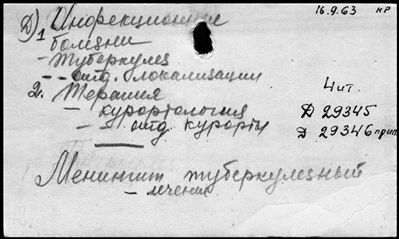 16.9.63 кр
Д) 1 Инфекционные
болезни
- Туберкулез
- - отд. локализации
2. Терапия
- курортология
- отд. курорты
4 чит.
Д 29345
Д 29346 прил
Менингит туберкулезный
- лечение